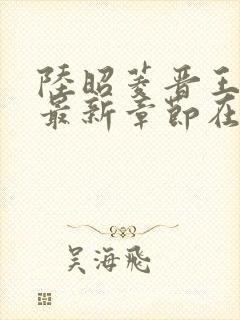 陸昭菱晋王
最新章節在
吴海飛